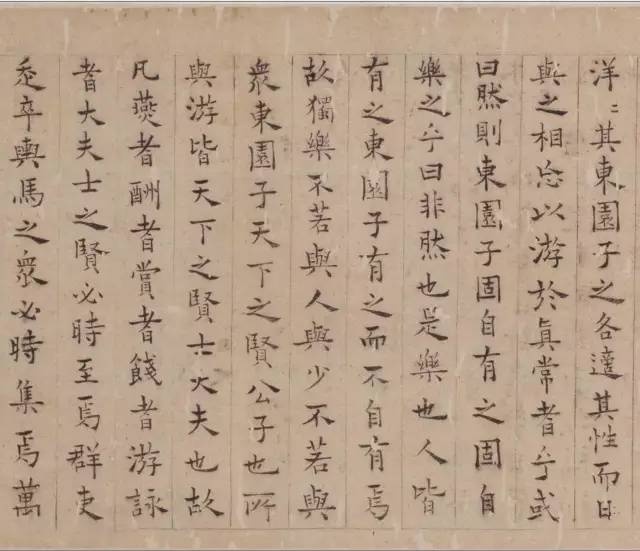 洋〻其東園子之各達其性而日
與之相忘以游於真常者乎或
曰然則東園子固自有之固自
樂之乎曰非然也是樂也人皆
有之東園子有之而不自有焉
故獨樂不若與人與少不若與
衆東園子天下之賢公子也所
與游皆天下之賢士大夫也故
凡燕者酬者賞者餞者游詠
者大夫士之賢必時至焉群吏
走卒輿馬之衆必時集焉萬